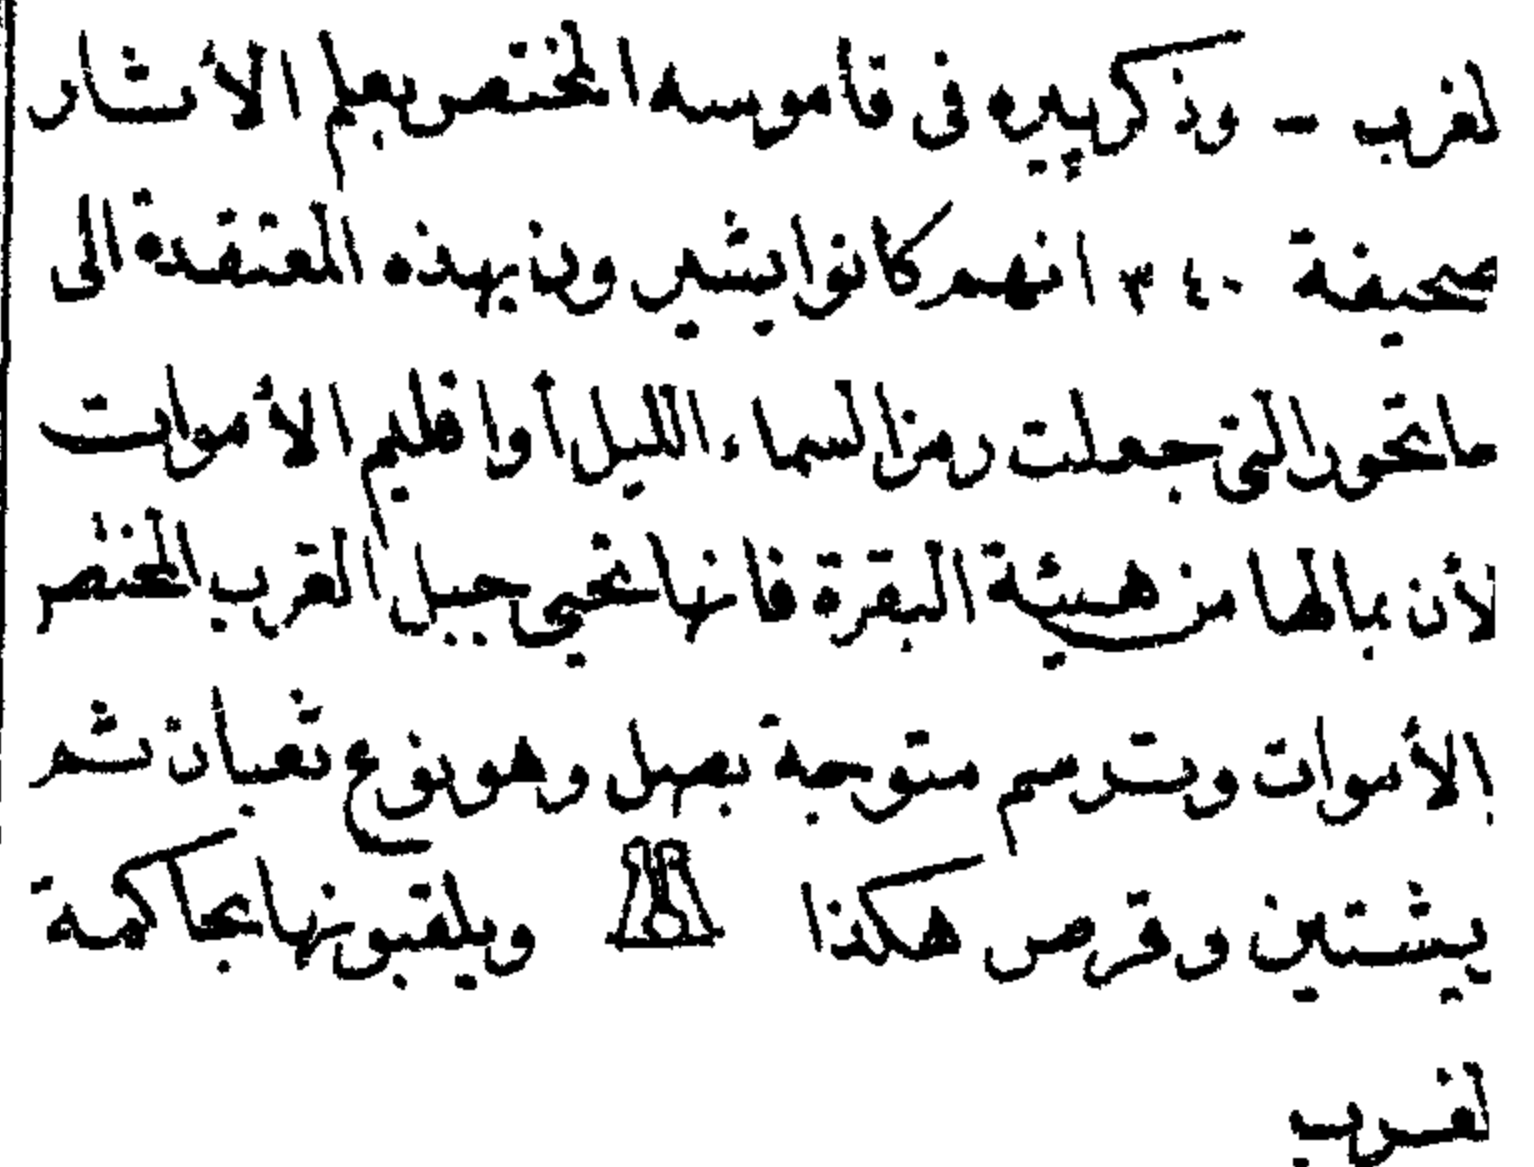 لغرب - وذكر پيره فى قاموسه المختص بعلم الأثار
صحيفة ٣٤٠ انهم كانوا يشيرون بهذه المعتقدة الى
ماتحور التى جعلت رمزا لسماء الليل أو اقليم الأموات
لأن بمالها من هيئة البقرة فانها تحيى جبل الغرب المختص
بالأموات وترسم متوجة بصهل وهو نوع ثعبان ثم
يشتين وقرص هكذا ويلقبونها بحاكمة
لغرب